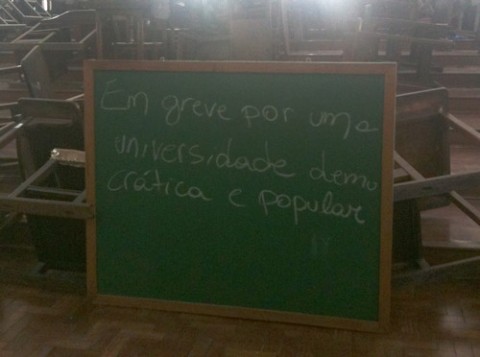 Em greve por uma
universidade demo
crática e popular